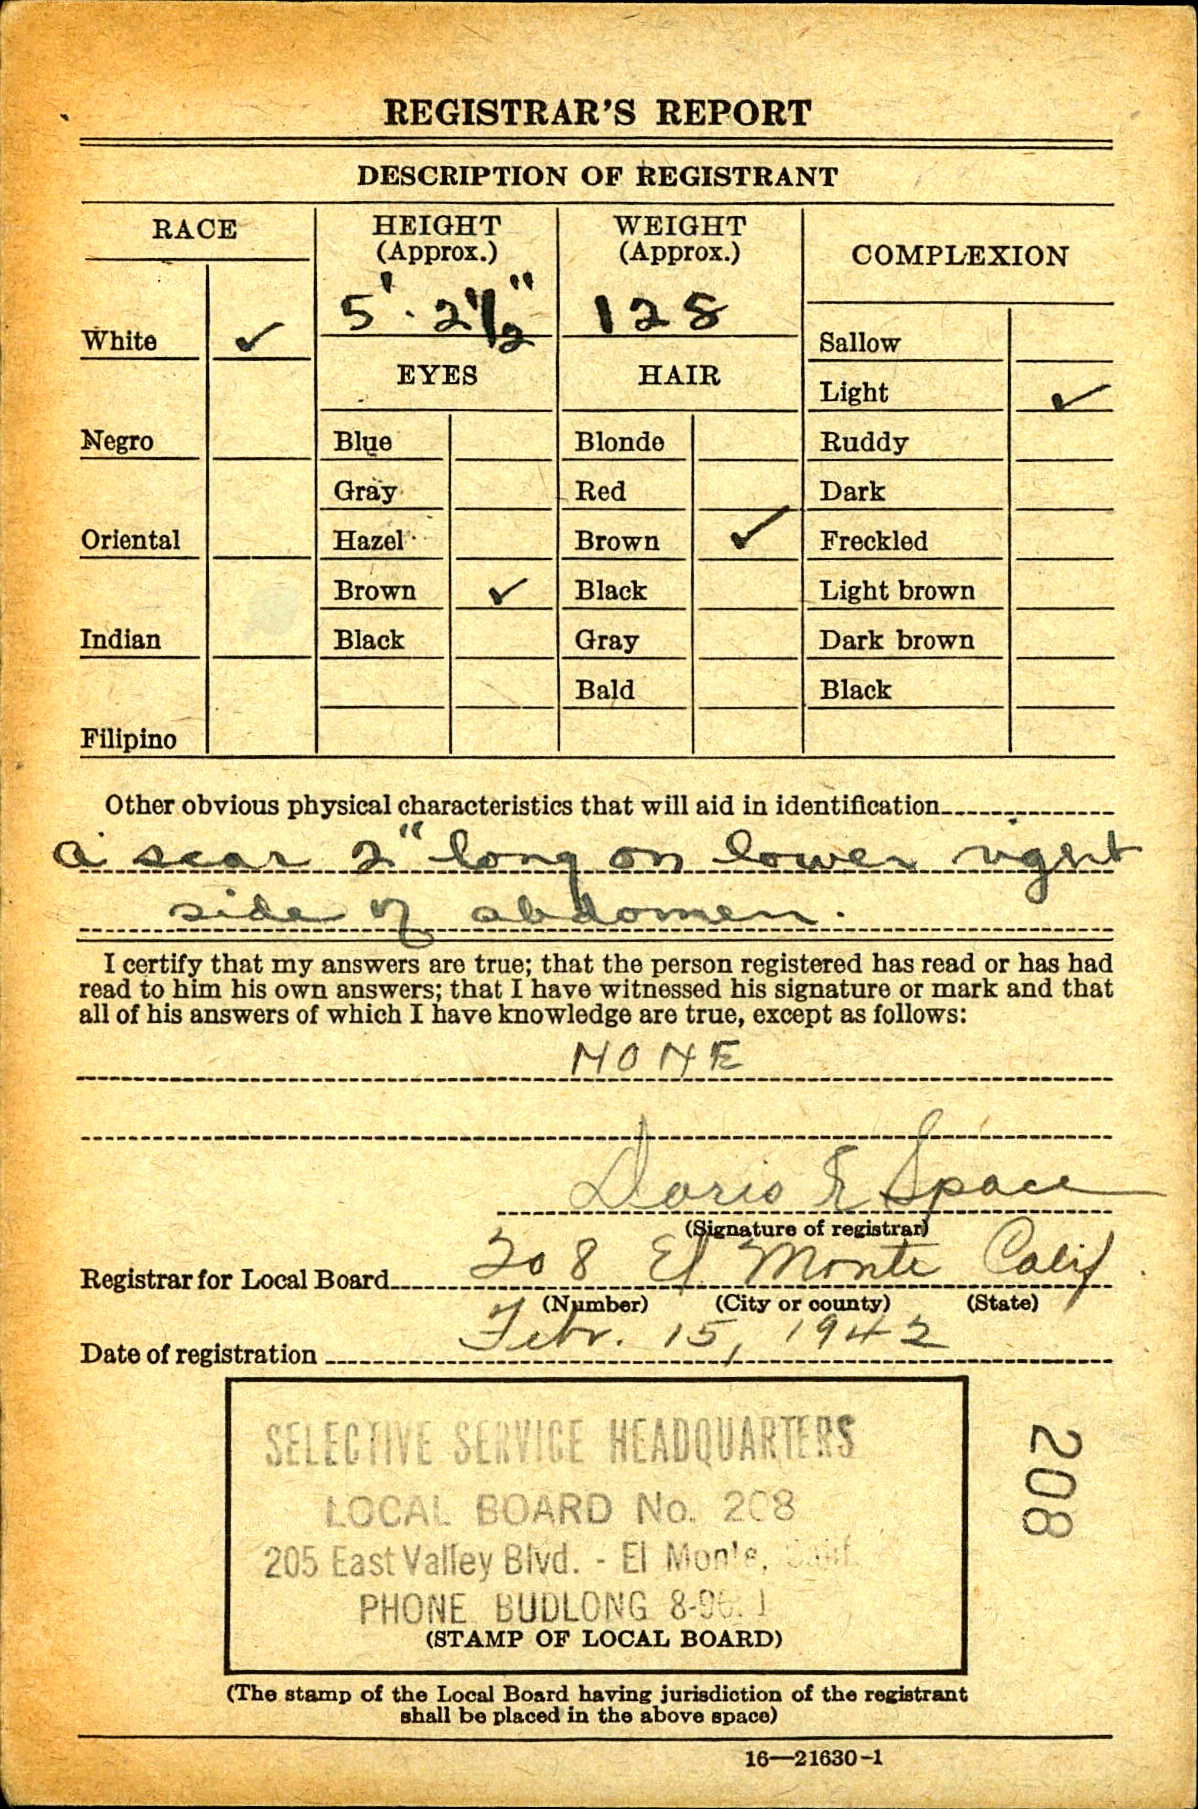 REGISTRAR'S REPORT
DESCRIPTION OF REGISTRANT
RACE
HEIGHT
(Approx.)
5' . 2 1/2"
WEIGHT
(Approx.)
128
COMPLEXION
White ✓
Negro
Oriental
Indian
Filipino
EYES
Blue
Gray
Hazel
Brown ✓
Black
HAIR
Blonde
Red
Brown ✓
Black
Gray
Bald
Sallow
Light ✓
Ruddy
Dark
Freckled
Light brown
Dark brown
Black
Other obvious physical characteristics that will aid in identification
a scar 2" long on lower right
side of abdomen.
I certify that my answers are true; that the person registered has read or has had
read to him his own answers; that I have witnessed his signature or mark and that
all of his answers of which I have knowledge are true, except as follows:
NONE
E Space
(Signature of registrar)
Registrar for Local Board 208 El Monte Calif
(Number) (City or county) (State)
Date of registration Febr. 15, 1942
SELECTIVE SERVICE HEADQUARTERS
LOCAL BOARD No. 208
205 East Valley Blvd. - El Monte, Calif.
PHONE BUDLONG
(STAMP OF LOCAL BOARD)
208
(The stamp of the Local Board having jurisdiction of the registrant
shall be placed in the above space)
16—21630-1